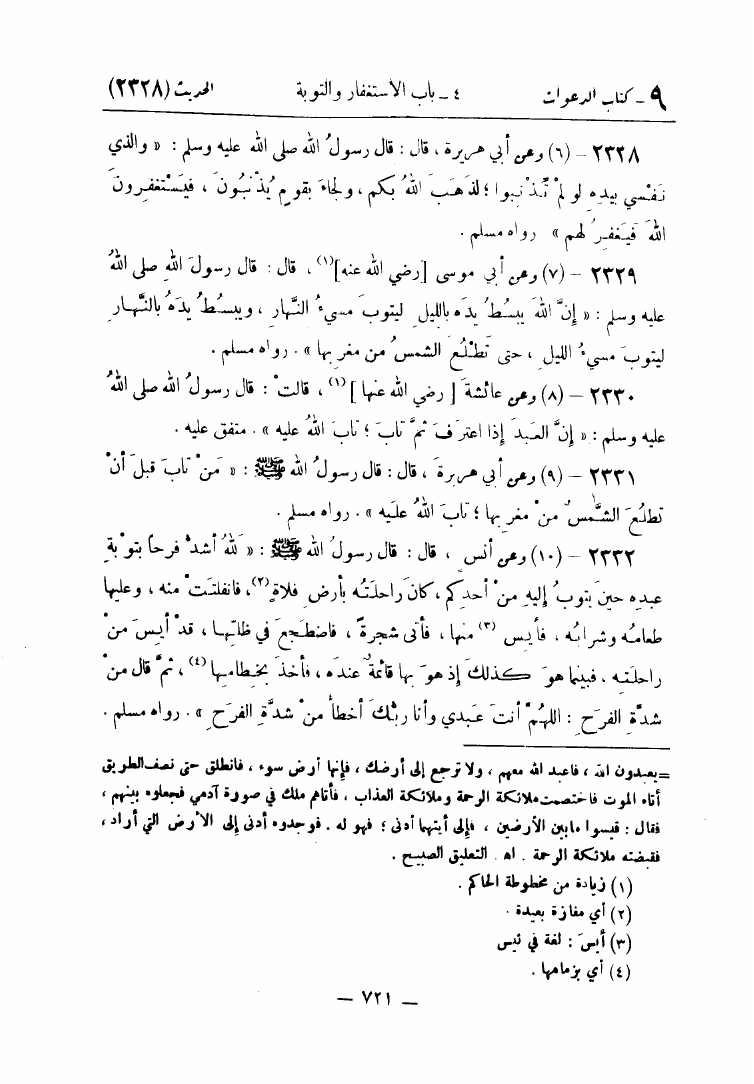 ٩ - كتاب الدعوات ٤ - باب الاستغفار والتوبة الحديث (٢٣٢٨)
٢٣٢٨ - (٦) وعن أبي هريرة ، قال : قال رسولُ الله صلى الله عليه وسلم : « والذي
نَفْسي بيدِه لو لمْ تُذْنِبوا ؛ لذَهَبَ اللهُ بكم ، ولجاءَ بقومٍ يُذْنبُونَ ، فيَسْتغفِرونَ
اللهَ فيَغفِرُ لهم » رواه مسلم .
٢٣٢٩ - (٧) وعن أبي موسى [رضي الله عنه](١) ، قال : قال رسولُ اللهِ صلى اللهُ
عليه وسلم : « إنَّ اللهَ يبسُطُ يدَه بالليلِ ليتوبَ مسيءُ النَّهارِ ، ويبسُطُ يدَهُ بالنَّهارِ
ليتوبَ مسيءُ الليلِ ، حتى تَطْلُعَ الشمسُ من مغرِبها » . رواه مسلم .
٢٣٣٠ - (٨) وعن عائشةَ [ رضي الله عنها ](١) ، قالتْ : قال رسولُ الله صلى اللهُ
عليه وسلم : « إنَّ العبدَ إذا اعترفَ ثمَّ تابَ ؛ تابَ اللهُ عليه » . متفق عليه .
٢٣٣١ - (٩) وعن أبي هريرةَ ، قال : قال رسولُ الله ﷺ : « مَنْ تابَ قبلَ أنْ
تطلُعَ الشَّمسُ منْ مغرِبها ؛ تابَ اللهُ علَيه » . رواه مسلم .
٢٣٣٢ - (١٠) وعن أنسٍ ، قال : قال رسولُ الله ﷺ : « لَلهُ أشدُّ فرحاً بتوْبةِ
عبدِه حينَ يتوبُ إليهِ منْ أحدِكم ، كانَ راحلَتُه بأرضِ فلاةٍ(٢) ، فانفلتَتْ منه ، وعليها
طعامُه وشرابُه ، فأيسَ (٣) منها ، فأتى شجرةً ، فاضطجعَ في ظلِّها ، قدْ أيسَ منْ
راحلتِه ، فبينما هوَ كذلكَ إذ هوَ بها قائمةً عندَه ، فأخذَ بخِطامِها (٤) ، ثمَّ قال منْ
شدَّةِ الفرَحِ : اللهُمَّ أنتَ عَبدي وأنا ربُّكَ أخطأَ منْ شدَّةِ الفرَحِ » . رواه مسلم .
= يعبدون الله ، فاعبد الله معهم ، ولا ترجع إلى أرضك ، فإنها أرض سوء ، فانطلق حتى نصف الطريق
أتاه الموت فاختصمت ملائكة الرحمة وملائكة العذاب ، فأتاهم ملك في صورة آدمي فجعلوه بينهم ،
فقال : قيسوا مابين الأرضين ، فإلى أيتهما أدنى ؛ فهو له . فوجدوه أدنى إلى الأرض التي أراد ،
فقبضته ملائكة الرحمة . اه . التعليق الصبيح .
(١) زيادة من مخطوطة الحاكم .
(٢) أي مفازة بعيدة .
(٣) أيسَ : لغة في يئس
(٤) أي بزمامها .
— ٧٢١ —